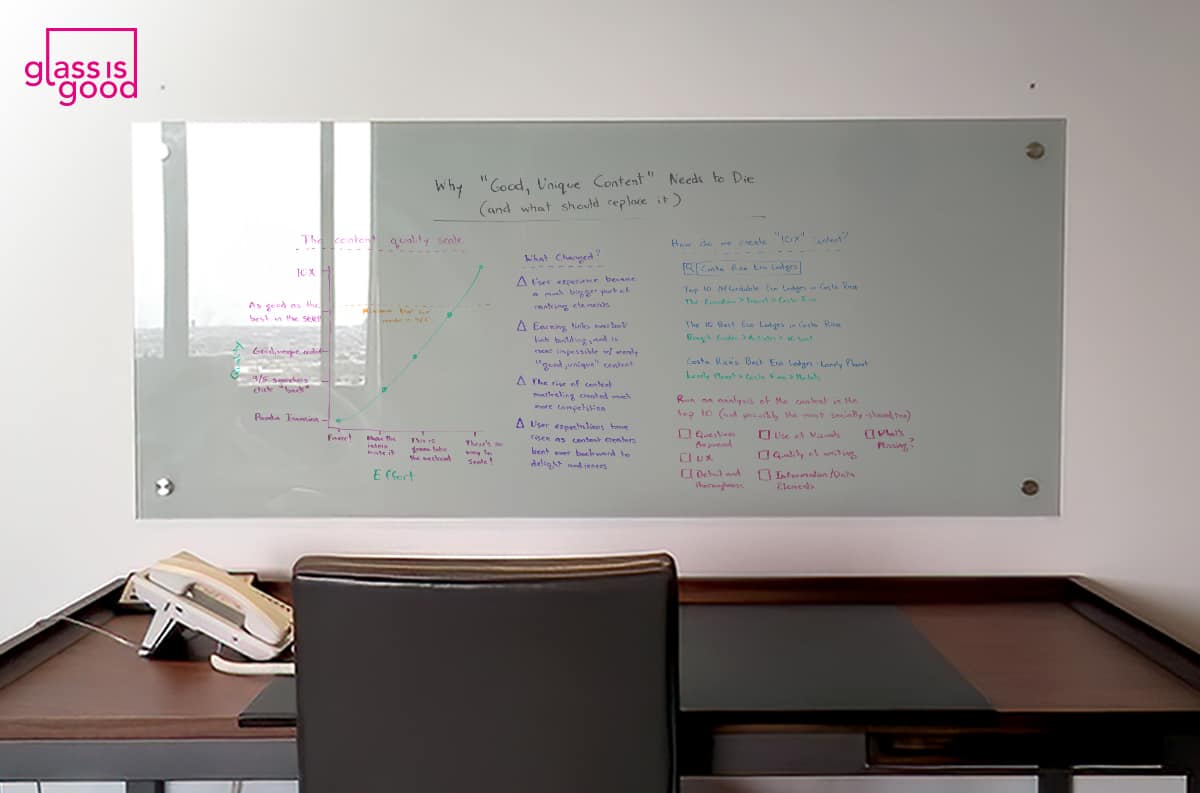 glass is
good
Why "Good, Unique Content" Needs to Die
(and what should replace it)
The content quality scale
10X
As good as the
best in the SERP
Good, unique
3/5 searchers
click "back"
Panda Invasion
Quality
Panda
make it
This is
gonna take
the weekend
There's no
way to
scale!
Effort
What Changed?
User experience became
a much bigger part of
ranking elements
Earning links overtook
link building, and is
near impossible w/ merely
"good, unique" content
The rise of content
marketing created much
more competition
User expectations have
risen as content creators
bent over backward to
delight audiences
How do we create "10X" content?
Costa Rica Eco Lodges
Top 10 Affordable Eco Lodges in Costa Rica
The Guardian > Travel > Costa Rica
The 10 Best Eco Lodges in Costa Rica
Costa Rica's Best Eco Lodges - Lonely Planet
Lonely Planet > Costa Rica > Hotels
Run an analysis of the content in the
top 10 (and possibly the most socially-shared)
Questions
Answered
UX
Detail and
thoroughness
Use of Visuals
Quality of writing
Information/Data
Elements
What's
Missing?